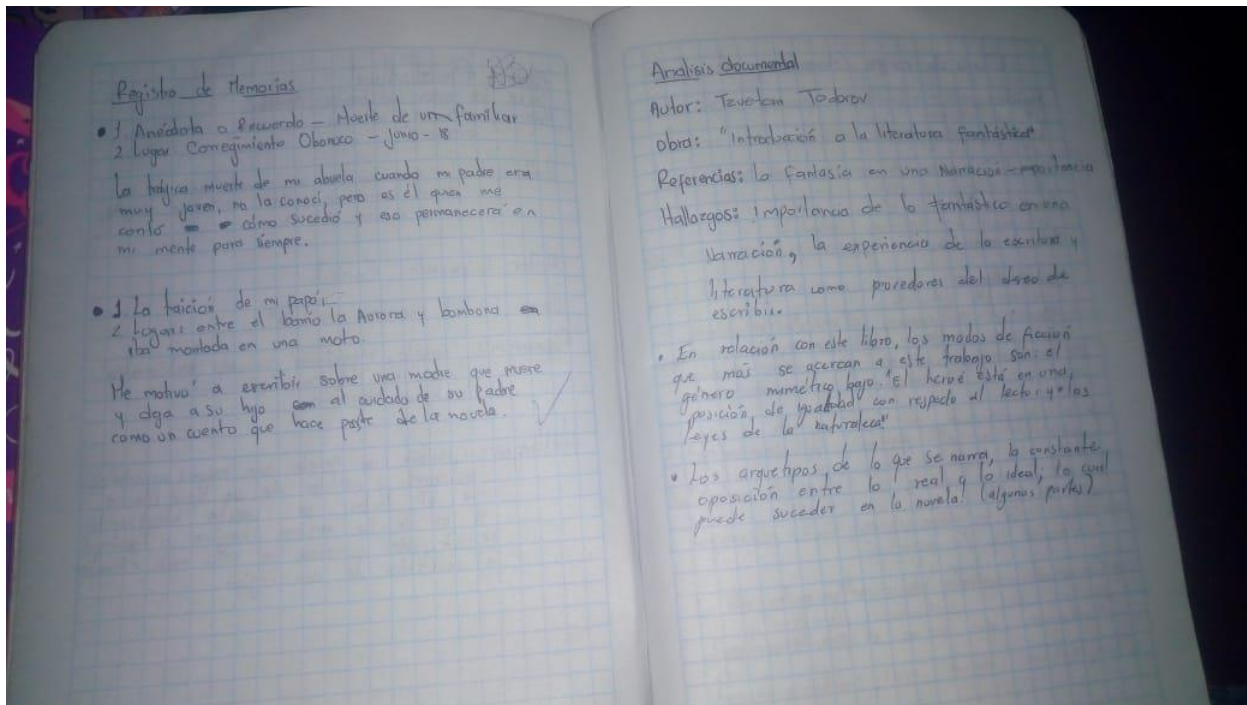 Registro de Memorias
• 1 Anécdota o Recuerdo – Muerte de un familiar
2 Lugar Corregimiento Obonuco – Junio - 18
La trágica muerte de mi abuela cuando mi padre era
muy joven, no la conocí, pero es él quien me
contó cómo sucedió y eso permanecerá en
mi mente para siempre.
• 1 La traición de mi papá.
2 Lugar: entre el barrio la Aurora y bombona
iba montada en una moto.
Me motivó a escribir sobre una madre que muere
y deja a su hijo al cuidado de su Padre
como un cuento que hace parte de la novela.
Analisis documental
Autor: Tzvetan Todorov
obra: "Introducción a la literatura fantástica"
Referencias: la fantasía en una Narración - importancia
Hallazgos: Importancia de lo fantástico en una
Narración, la experiencia de la escritura y
literatura como provedores del deseo de
escribir.
• En relación con este libro, los modos de ficción
que más se acercan a este trabajo son: el
género mimético bajo. "El heroé está en una
posición de igualdad con respecto al lector y a las
leyes de la naturaleza"
• Los arquetipos de lo que se narra, la constante
oposición entre lo real y lo ideal; lo cual
puede suceder en la novela. (algunas partes)